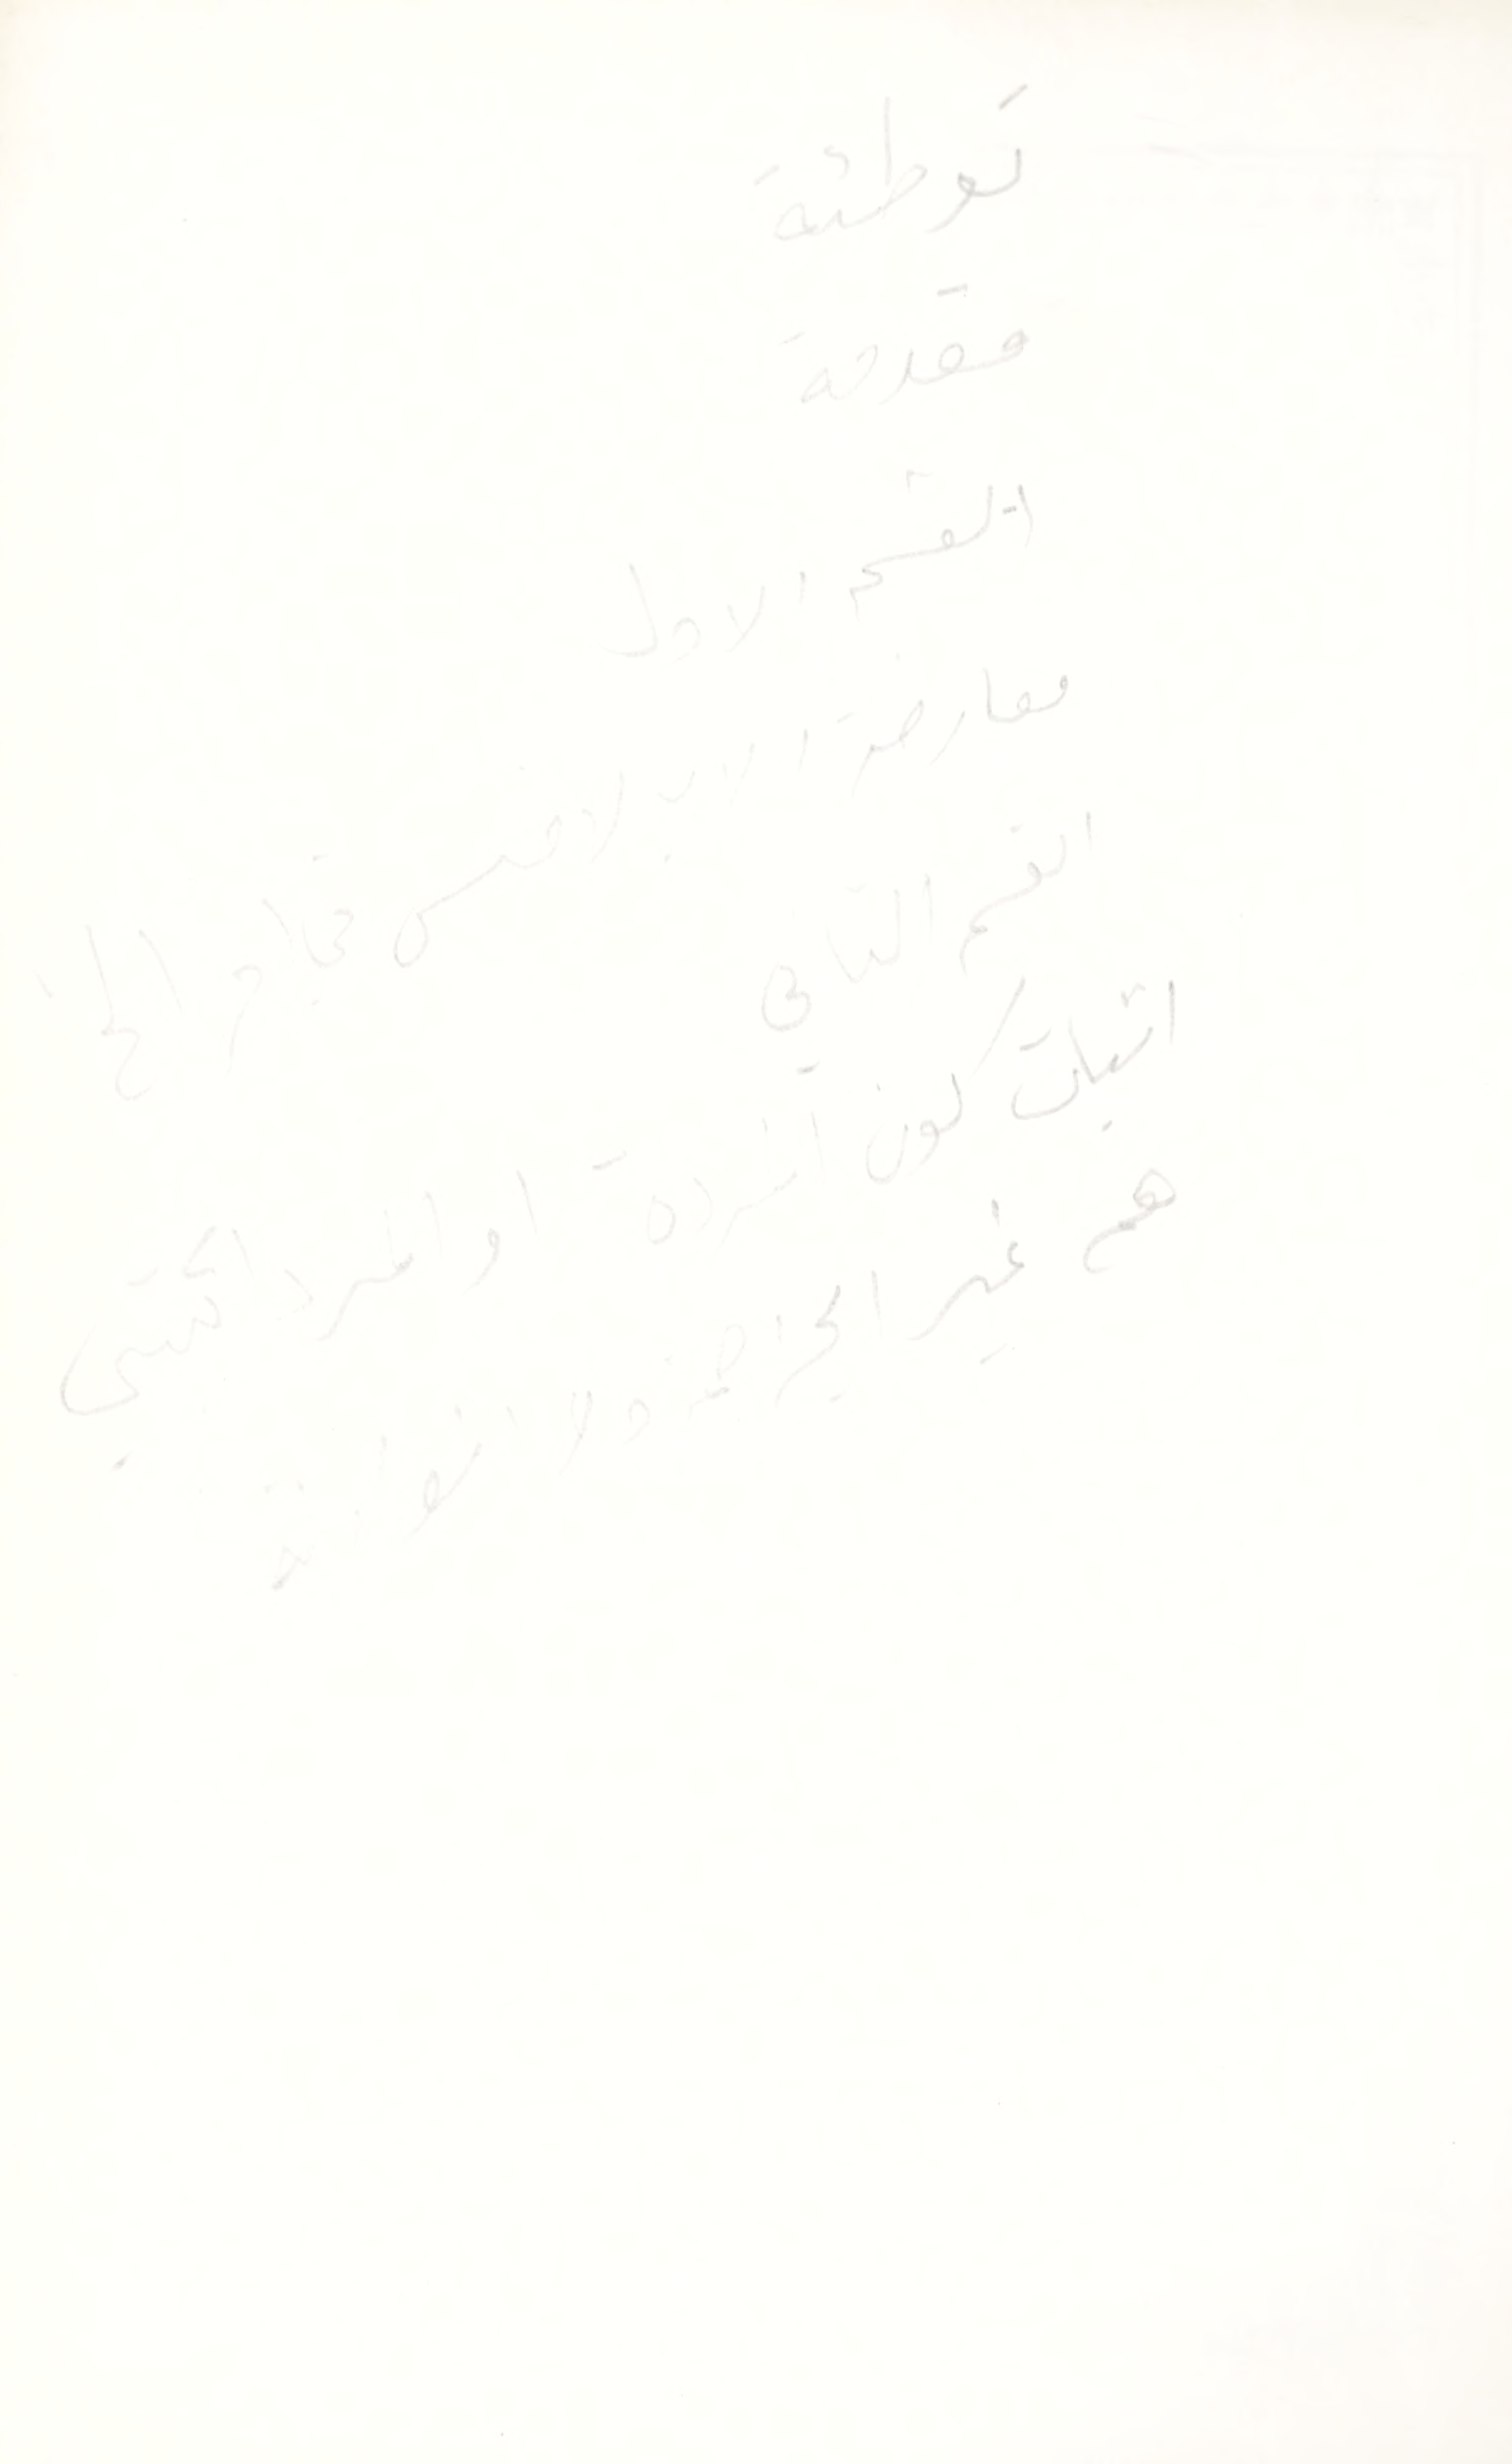 توطئة
مقدمة
القسم الاول
معارضة الاب لامنس
القسم الثاني
اثبات كون المردة او المردائتين
هم غير الجراجمة ولا